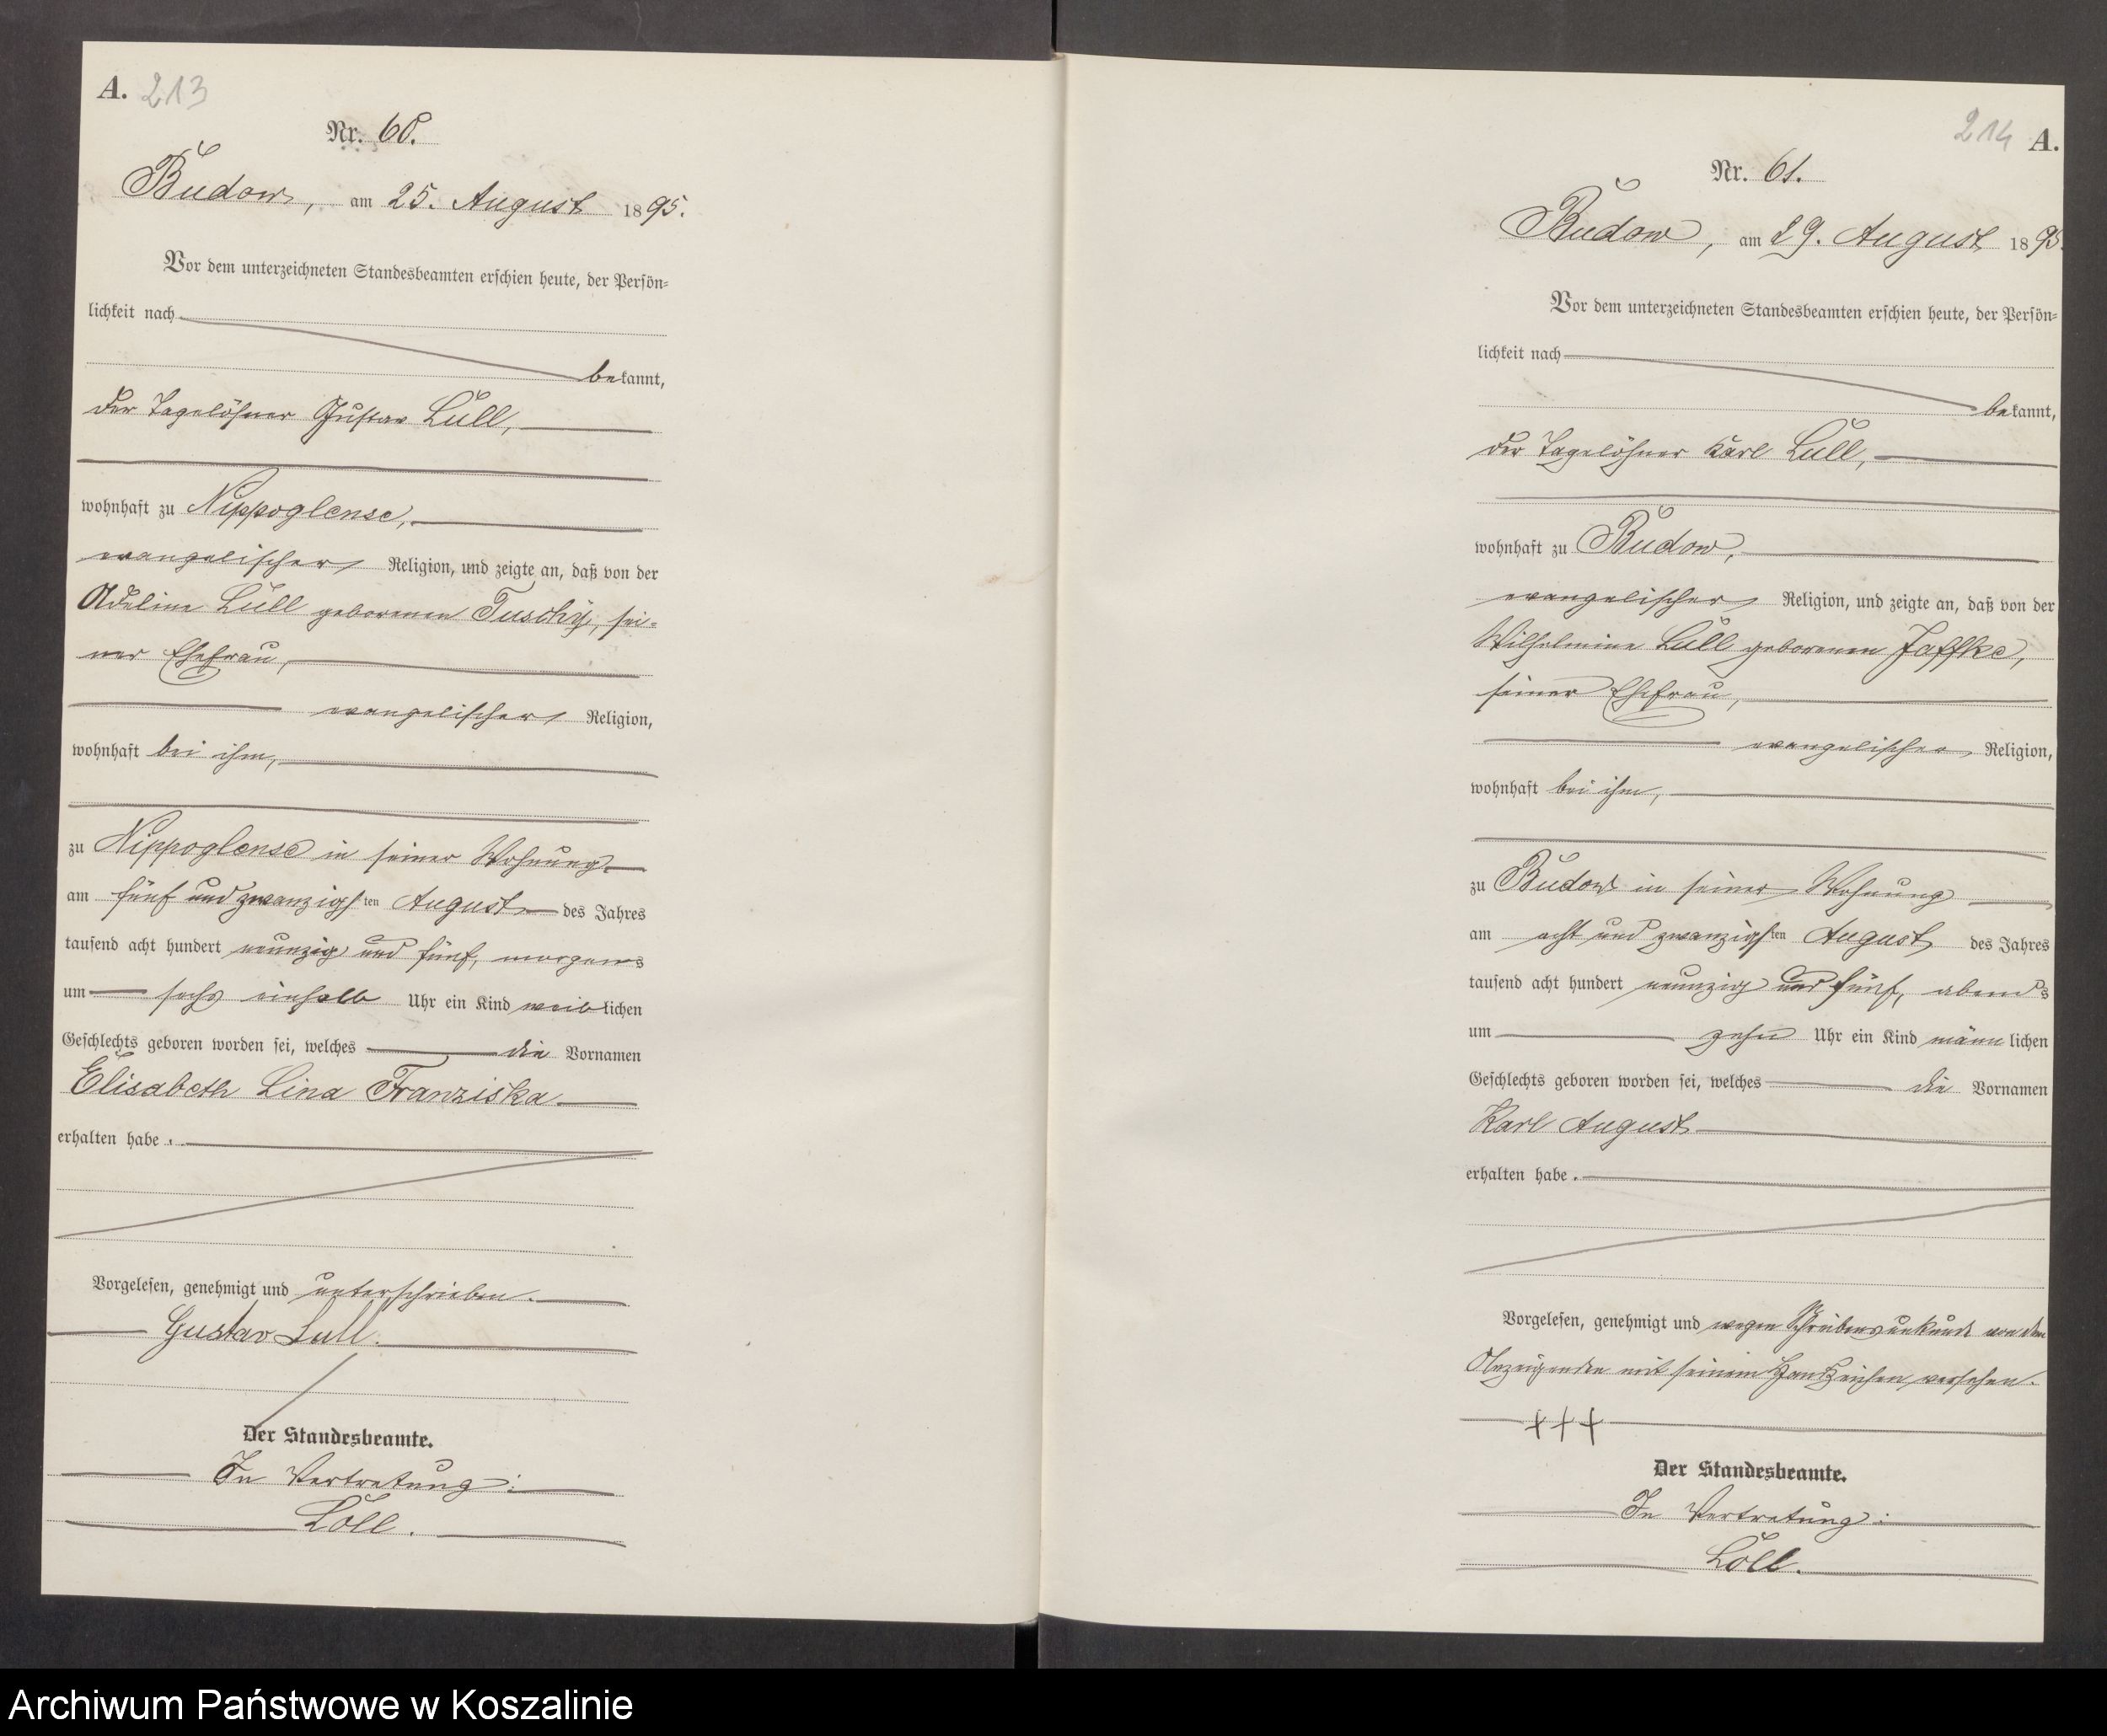 A. 213
Nr. 60.
Budow, am 25. August 1895.
Vor dem unterzeichneten Standesbeamten erschien heute, der Persön-
lichkeit nach
bekannt,
der Tagelöhner Gustav Lull,
wohnhaft zu Nippoglense,
evangelischer Religion, und zeigte an, daß von der
Adeline Lull geborenen Tuschy, sei-
ner Ehefrau,
evangelischer Religion,
wohnhaft bei ihm,
zu Nippoglense in seiner Wohnung
am fünf und zwanzigsten August des Jahres
tausend acht hundert neunzig und fünf, morgens
um sechs einhalb Uhr ein Kind weiblichen
Geschlechts geboren worden sei, welches die Vornamen
Elisabeth Lina Franziska
erhalten habe.
Vorgelesen, genehmigt und unterschrieben.
Gustav Lull.
Der Standesbeamte.
In Vertretung:
Löll.
214 A.
Nr. 61.
Budow, am 29. August 1895.
Vor dem unterzeichneten Standesbeamten erschien heute, der Persön-
lichkeit nach
bekannt,
der Tagelöhner Karl Lull,
wohnhaft zu Budow,
evangelischer Religion, und zeigte an, daß von der
Wilhelmine Lull geborenen Jaffke,
seiner Ehefrau,
evangelischer Religion,
wohnhaft bei ihm,
zu Budow in seiner Wohnung
am acht und zwanzigsten August des Jahres
tausend acht hundert neunzig und fünf, abends
um zehn Uhr ein Kind männlichen
Geschlechts geboren worden sei, welches die Vornamen
Karl August
erhalten habe.
Vorgelesen, genehmigt und wegen Schreibensunkunde von dem
Anzeigenden mit seinem Handzeichen versehen.
+++
Der Standesbeamte.
In Vertretung:
Löll.
Archiwum Państwowe w Koszalinie